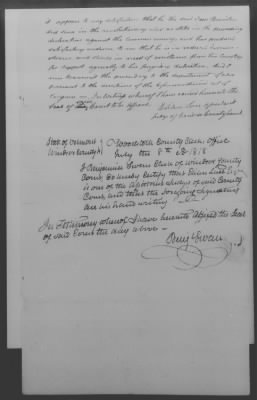 it appears to my satisfaction that he the said
did serve in the revolutionary war as state in the preceding
declaration against the common enemy and has produced
satisfactory evidence to me that he is in reduced circum-
stances and stands in need of assistance from his country
for support agreeably to his foregoing declaration. And I
now transmit the according to the department of
war pursuant to the directions of the aforementioned act of
Congress in testimony whereof I have caused hereunto the
Seal of Court to be affixed.
Judge of Court
State of Vermont } Woodstock County Clerk office
Windsor County } July the 8th 1818
I Benjamin Swan Clerk of Windsor County
Court do hereby certify that
is one of the Judges of said County
Court and that the foregoing signature
are his hand writing
In Testimony whereof I have hereunto affixed the Seal
of said Court the day above
Benj Swan